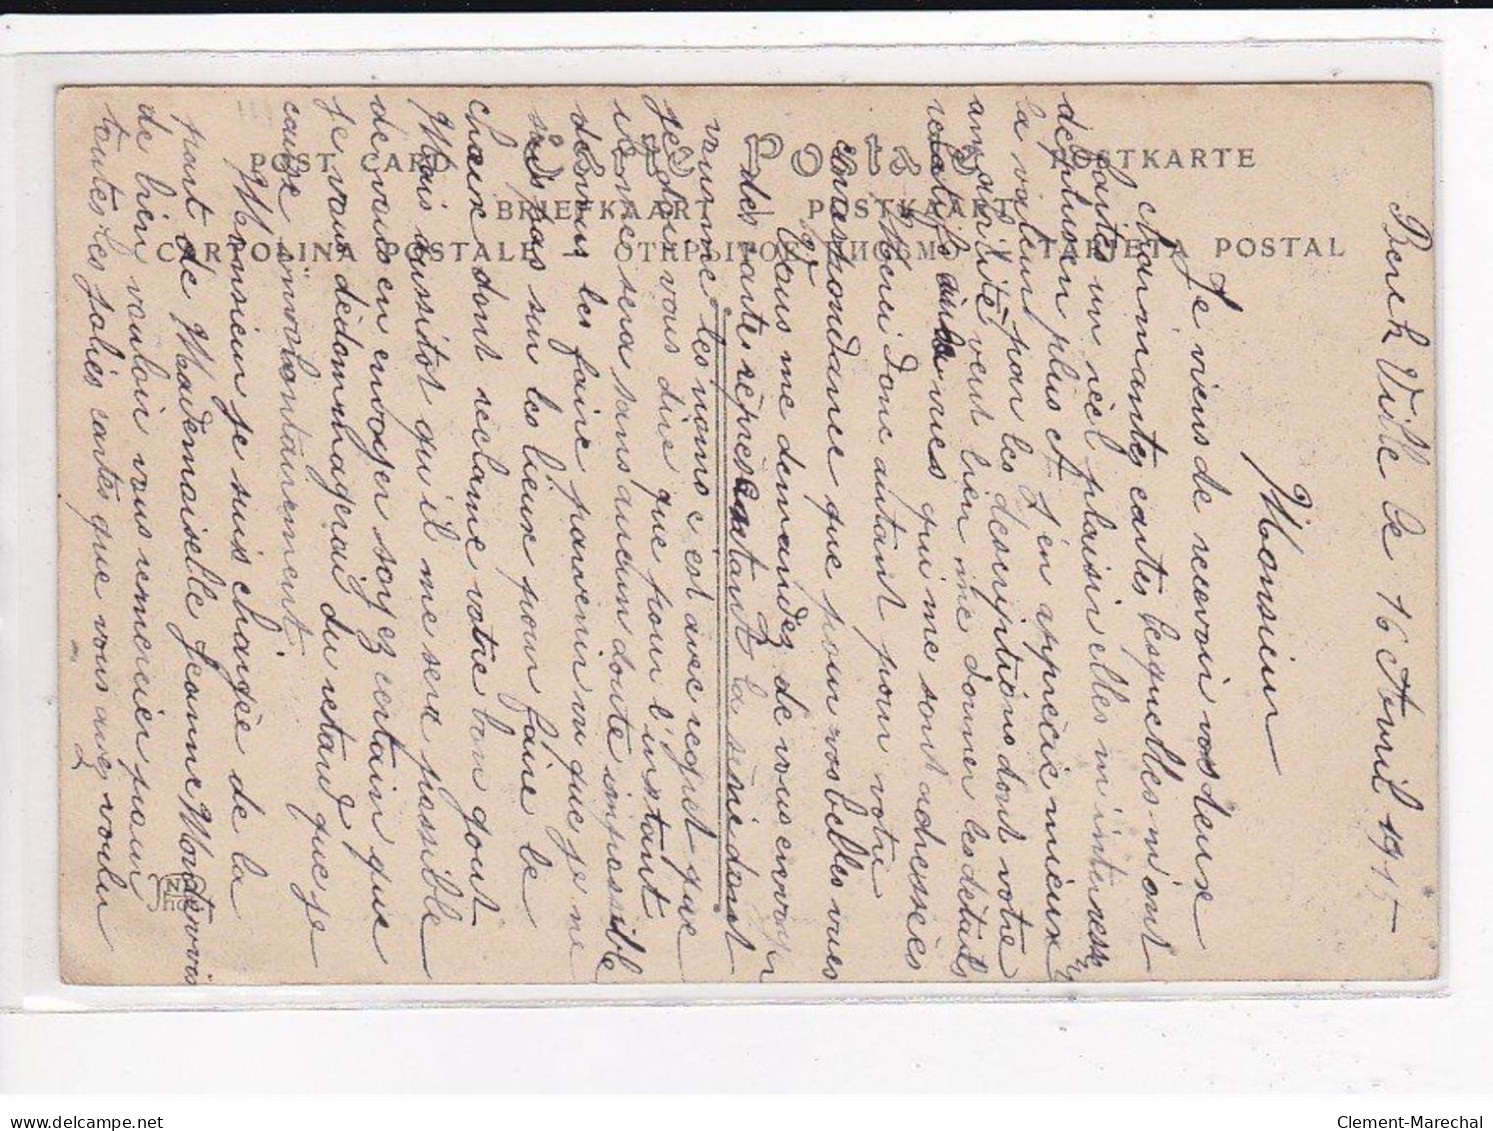 Berck Ville le 16 Avril 1915
Monsieur
Je viens de recevoir vos deux
charmantes cartes lesquelles m'ont
faites un réel plaisir elles m'intéresse
de plus en plus et j'en apprécie mieux
la valeur par les descriptions dont votre
amabilité veut bien me donner les détails
relatifs aux vues qui me sont adressées
Merci donc autant pour votre
correspondance que pour vos belles vues
Vous me demandez de vous envoyer
des carte représentant la série dont
vous me les noms c'est avec regret que
je dois vous dire que pour l'instant
il me sera sans aucun doute impossible
de vous les faire parvenir vu que je ne
suis pas sur les lieux pour faire le
choix dont réclame votre bon gout
Mais aussitôt qu'il me sera possible
de vous en envoyer soyez certain que
je vous dédommagerai du retard que je
cause involontairement.
Monsieur je suis chargée de la
part de Mademoiselle Jeanne
de bien vouloir vous remercier pour
toutes les jolies cartes que vous avez voulu
POST CARD Carte Postale POSTKARTE
BRIEFKAART POSTKAART
CARTOLINA POSTALE - ОТКРЫТОЕ ПИСЬМО - TARJETA POSTAL
Clement-Marechal
delcampe.net